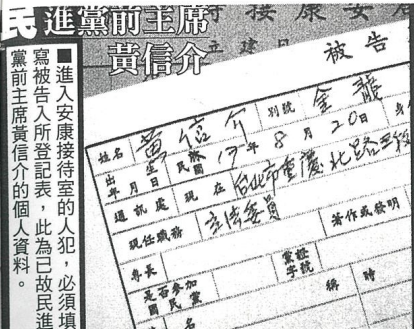 民進黨前主席
黃信介
■進入安康接待室的人犯，必須填
寫被告入所登記表，此為已故民進
黨前主席黃信介的個人資料。
待 接 康 安
立 建
被 告
姓名 黃信介 別號 金龍
出生年月日 民國 17年 8月 20日
通訊處 現在 台北市重慶北路三段
現任職務 立法委員 著作或發明
專長
是否參加國民黨 黨證字號
稱 時
名